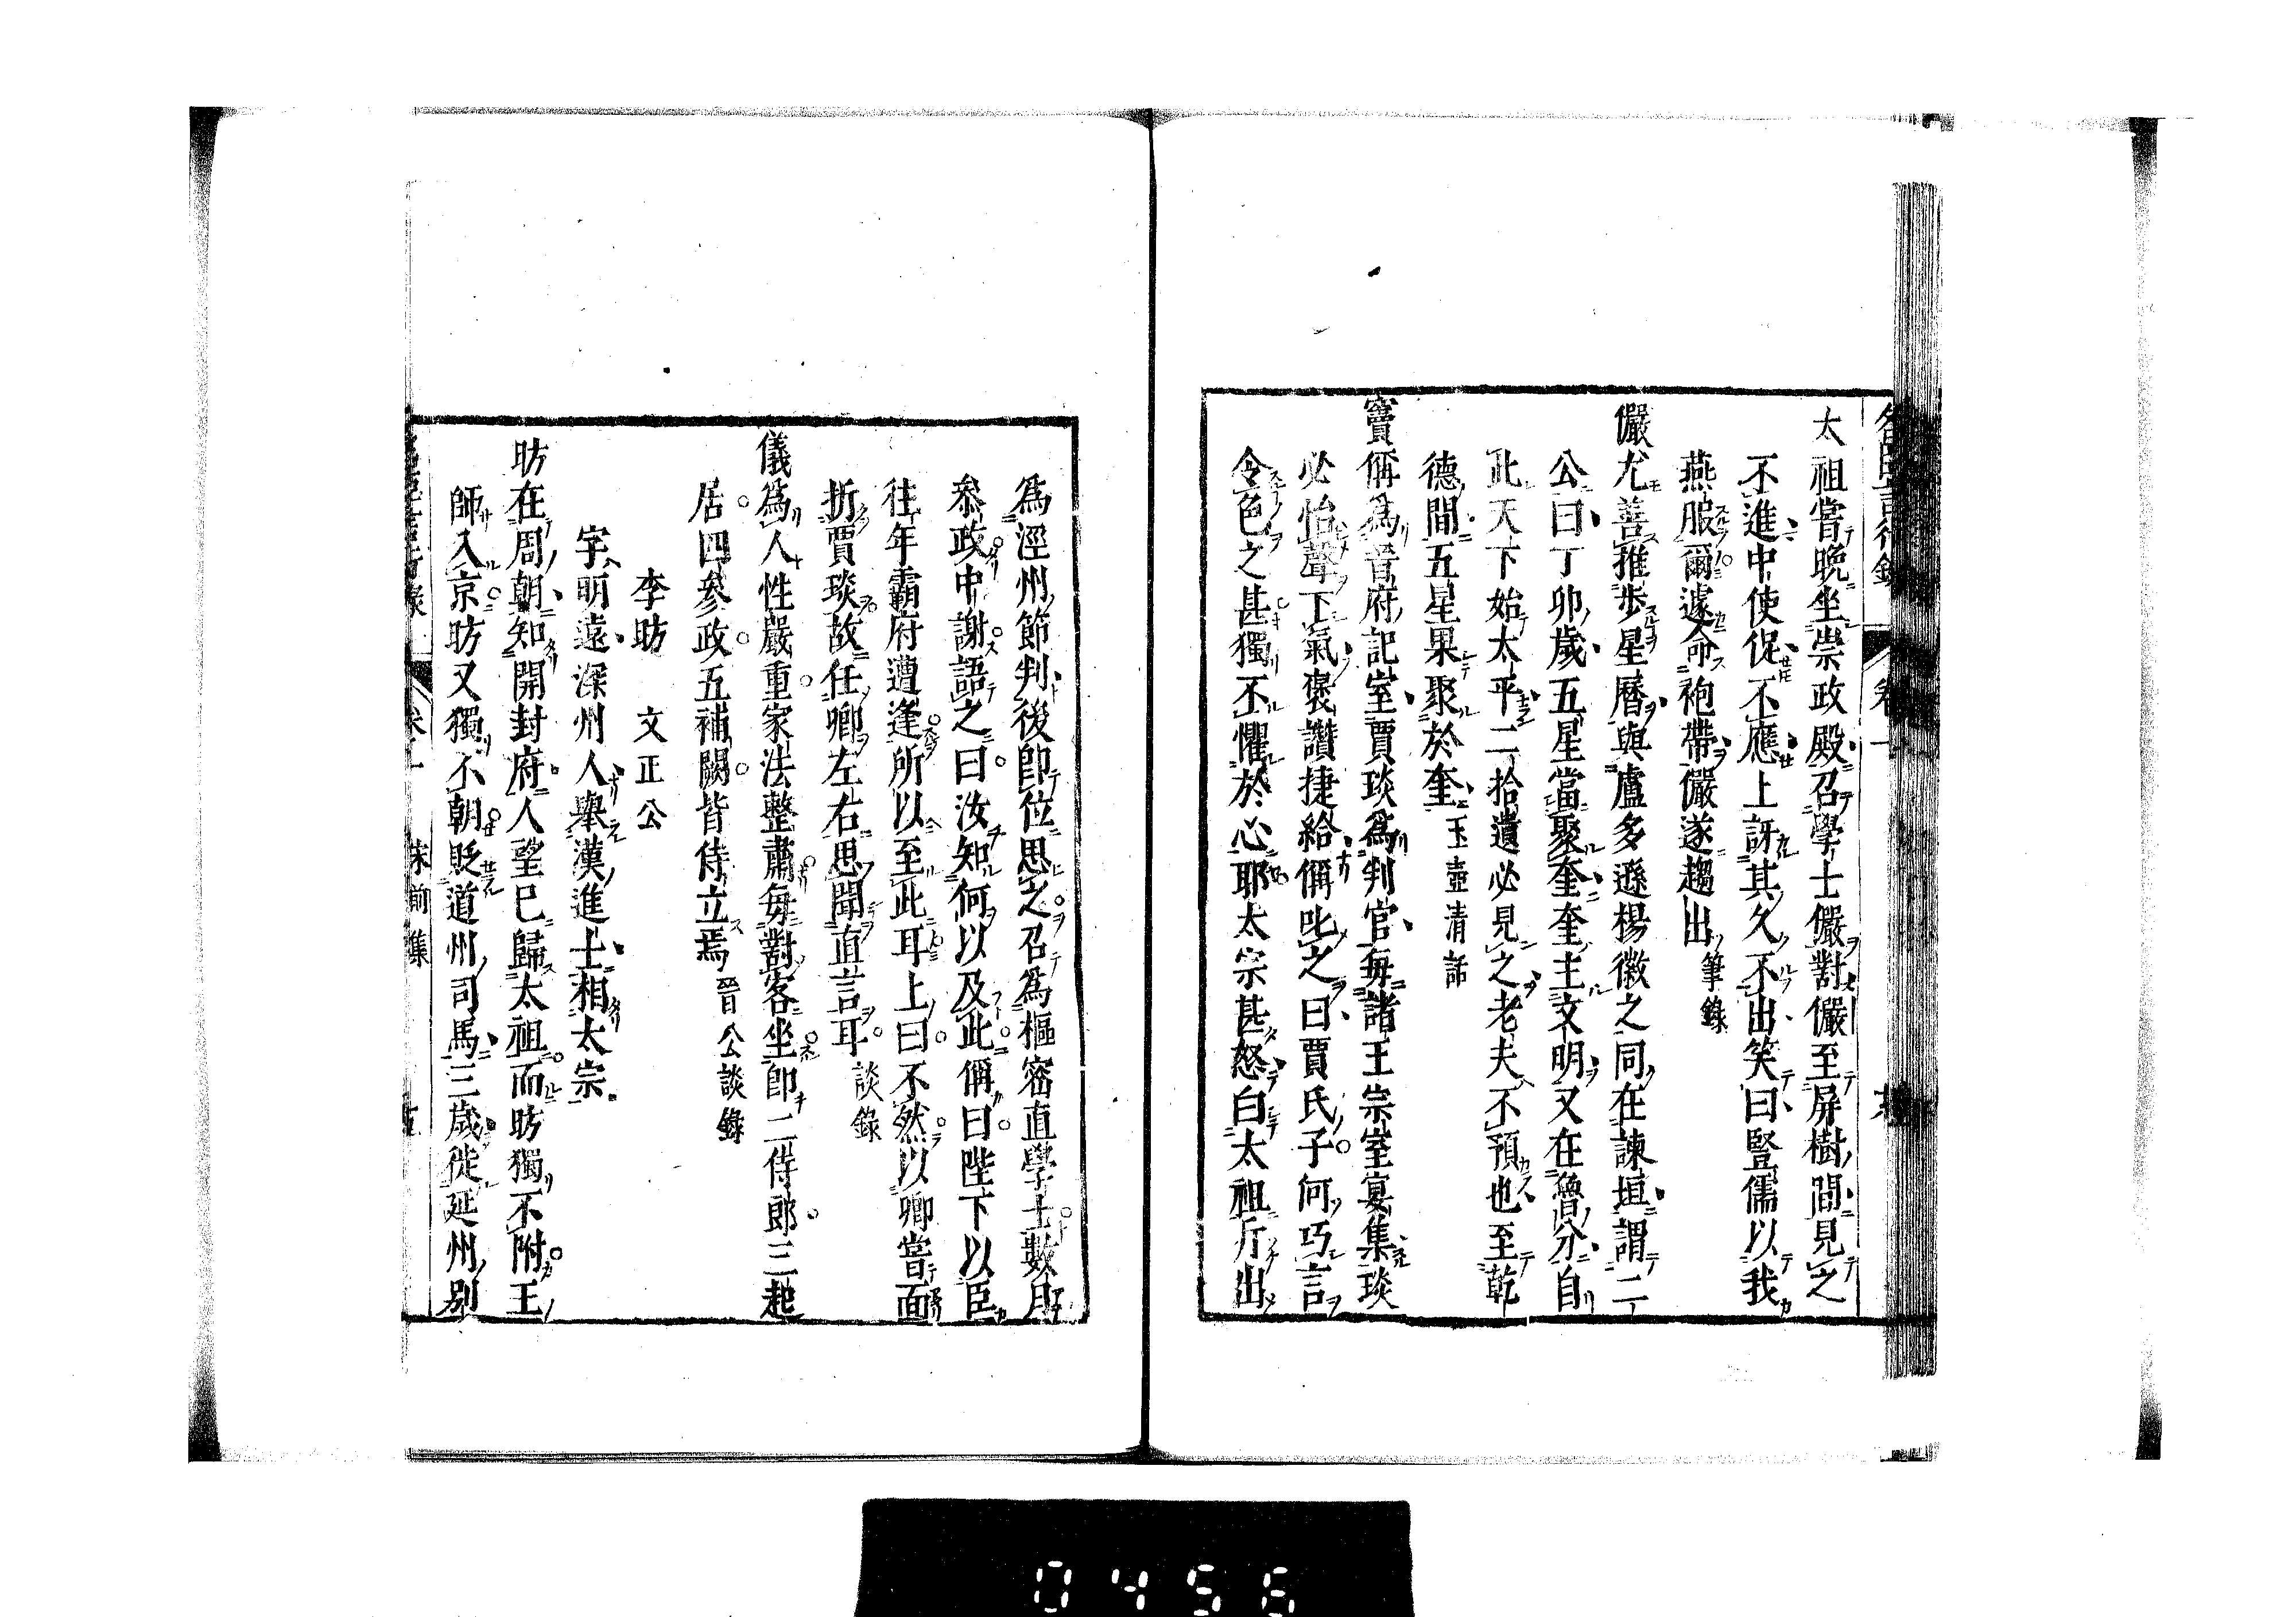 太祖嘗晩坐崇政殿召學士儼對儼至屏樹間見之
不進中使促不應上訝其久不出笑曰豎儒以我
燕服爾遽命袍帶儼遂趨出筆錄
儼尤善推步星曆與盧多遜楊徽之同在諫垣謂二
公曰丁卯歲五星當聚奎奎主文明又在魯分自
此天下始太平二拾遺必見之老夫不預也至乾
德間五星果聚於奎玉壺清話
竇偁爲晉府記室賈琰爲判官每諸王宗室宴集琰
必怡聲下氣褒讚捷給偁叱之曰賈氏子何巧言
令色之甚獨不懼於心耶太宗甚怒白太祖斤出
爲涇州節判後卽位思之召爲樞密直學士數月
叅政中謝語之曰汝知何以及此偁曰陛下以臣
往年霸府遭逢所以至此耳上曰不然以卿嘗面
折賈琰故任卿左右思聞直言耳談錄
儀爲人性嚴重家法整肅每對客坐卽二侍郎三起
居四參政五補闕皆侍立焉晉公談錄
李昉　文正公
字明遠深州人擧漢進士相太宗
昉在周朝知開封府人望已歸太祖而昉獨不附王
師入京昉又獨不朝貶道州司馬三歲徙延州別